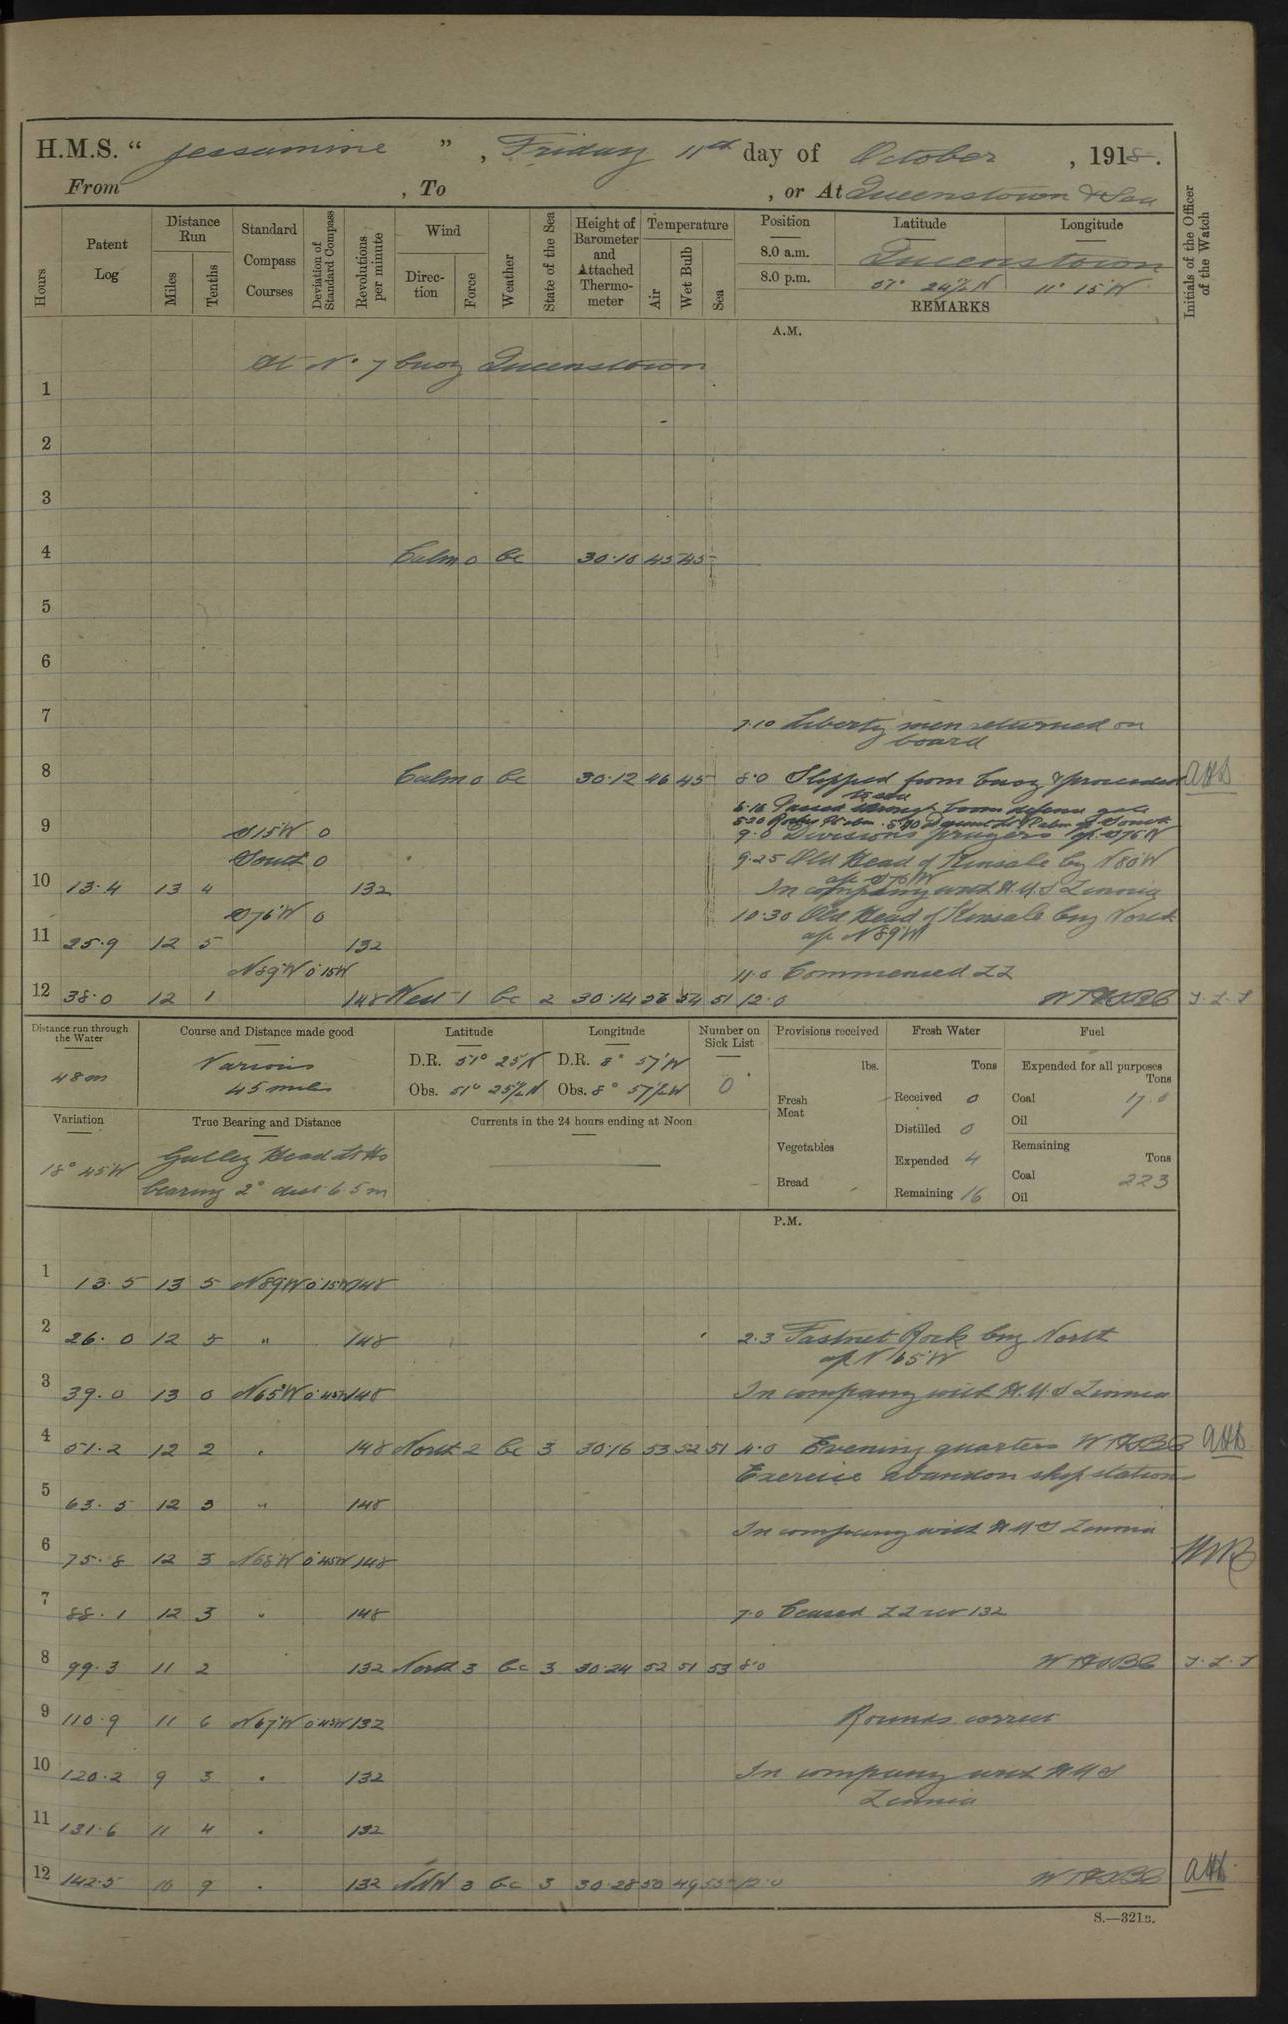 H.M.S. " Jessamine " , Friday 11th day of October , 1918.
From , To , or At Queenstown & Sea
Hours
Patent Log
Distance Run
Miles
Tenths
Standard Compass Courses
Deviation of Standard Compass
Revolutions per minute
Wind
Direction
Force
Weather
State of the Sea
Height of Barometer and Attached Thermometer
Temperature
Air
Wet Bulb
Sea
Position
8.0 a.m.
8.0 p.m.
Latitude
Longitude
Queenstown
51° 24½ N 11° 15' W
REMARKS
Initials of the Officer of the Watch
A.M.
At No 7 buoy Queenstown
1
2
3
4 Calm 0 bc 30.10 45 45
5
6
7
7.10 Liberty men returned on
board
8 Calm 0 bc 30.12 46 45 8.0 Slipped from buoy & proceeded
to sea
Passed through boom defence gate
9 S15°W 0
9.0 Divisions prayers a/c S76W
South 0 9.25 Old Head of Kinsale by N80W
a/c S76W
10 13.4 13 4 132 In company with H.M.S Zinnia
S76°W 0 10.30 Old Head of Kinsale by North
a/c N89W
11 25.9 12 5 132
N89°W 0.15W 11.0 Commenced ZZ
12 38.0 12 1 148 West 1 bc 2 30.14 56 54 51 12.0
Distance run through the Water
48m
Course and Distance made good
Various
45 miles
Latitude
D.R. 51° 25'N
Obs. 51° 25½ N
Longitude
D.R. 8° 57'W
Obs. 8° 57½ W
Number on Sick List
0
Provisions received
lbs.
Fresh Meat
Vegetables
Bread
Fresh Water
Tons
Received 0
Distilled 0
Expended 4
Remaining 16
Fuel
Expended for all purposes
Tons
Coal 17.0
Oil
Remaining
Tons
Coal 223
Oil
Variation
18° 45'W
True Bearing and Distance
Galley Head Lt Ho
bearing 2° dist 6.5 m
Currents in the 24 hours ending at Noon
P.M.
1 13.5 13 5 N89W 0.15W 148
2 26.0 12 5 " 148 2.3 Fastnet Rock by North
a/c N65W
3 39.0 13 0 N65W 0.45W 148 In company with H.M.S Zinnia
4 51.2 12 2 " 148 North 2 bc 3 30.16 53 52 51 4.0 Evening quarters
Exercise abandon ship stations
5 63.5 12 3 " 148
In company with HMS Zinnia
6 75.8 12 3 N68W 0.45W 148
7 88.1 12 3 " 148 7.0 Ceased ZZ rev 132
8 99.3 11 2 " 132 North 3 bc 3 30.24 52 51 53 8.0
9 110.9 11 6 N67W 0.45W 132 Rounds correct
10 120.2 9 3 " 132 In company with HMS
Zinnia
11 131.6 11 4 " 132
12 142.5 10 9 " 132 NNW 3 bc 3 30.28 50 49 53 12.0
S.—321B.